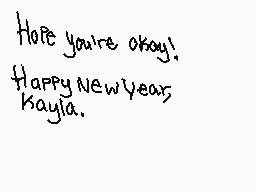 Hope you're okay!
Happy New Year,
Kayla.